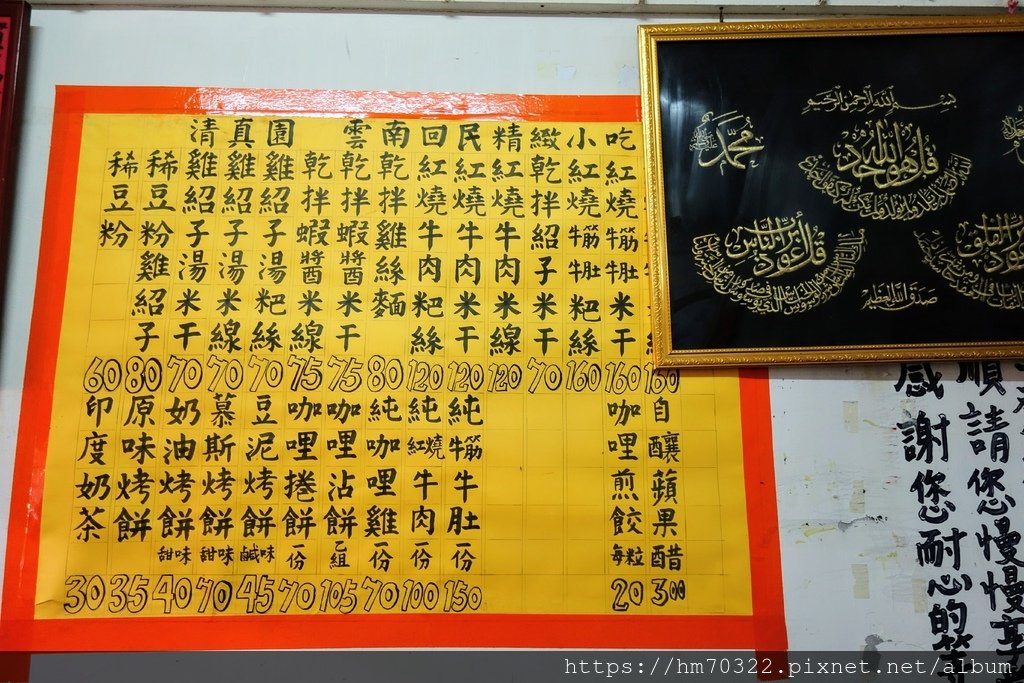 清真園 雲南回民精緻小吃
160
紅燒牛筋牛肚米干 160
紅燒牛筋牛肚粑絲 160
乾拌紹子米干 70
紅燒牛肉米線 120
紅燒牛肉米干 120
紅燒牛肉粑絲 120
乾拌雞絲麵 80
乾拌蝦醬米干 75
乾拌蝦醬米線 75
雞紹子湯粑絲 70
雞紹子湯米線 70
雞紹子湯米干 70
稀豆粉雞紹子 80
稀豆粉 60
自釀蘋果醋 300
咖哩煎餃每粒 20
純牛筋牛肚一份 150
純紅燒牛肉一份 100
純咖哩雞一份 70
咖哩沾餅乙組 105
咖哩捲餅一份 70
豆泥烤餅鹹味 45
慕斯烤餅甜味 70
奶油烤餅甜味 40
原味烤餅 35
印度奶茶 30
بسم الله الرحمن الرحيم
محمد
قل هو الله احد
قل أعوذ برب الناس
صدق الله العظيم
順請您慢慢享
感謝您耐心的等
https://hm70322.pixnet.net/album